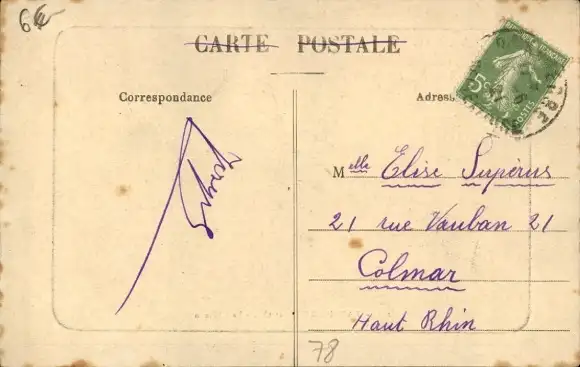 6€
CARTE POSTALE
Correspondance
Adres
Melle Elise Supérus
21 rue Vauban 21
Colmar
Haut Rhin
5c
POSTES
78